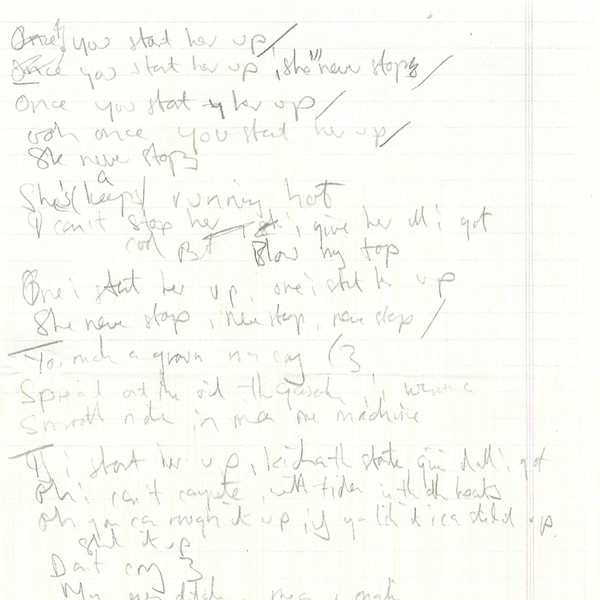 Once you start her up
Once you start her up, she never stops
Once you start her up
ooh once you start her up
She never stops
She's (keeps) a running hot
I can't stop her i give her all i got
cool But Blow my top
One i start her up, one i start her up
She never stop, never stop, never stop
You make a grown man cry (3
Spread out the oil the gasoline i wanna
Smooth ride in mean machine
If i start her up, kick start give it all i got
Oh i can't compete, with riders in the heats
Oh you can rough it up, if ya like it i can up
start it up
Don't cry 3
My eyes